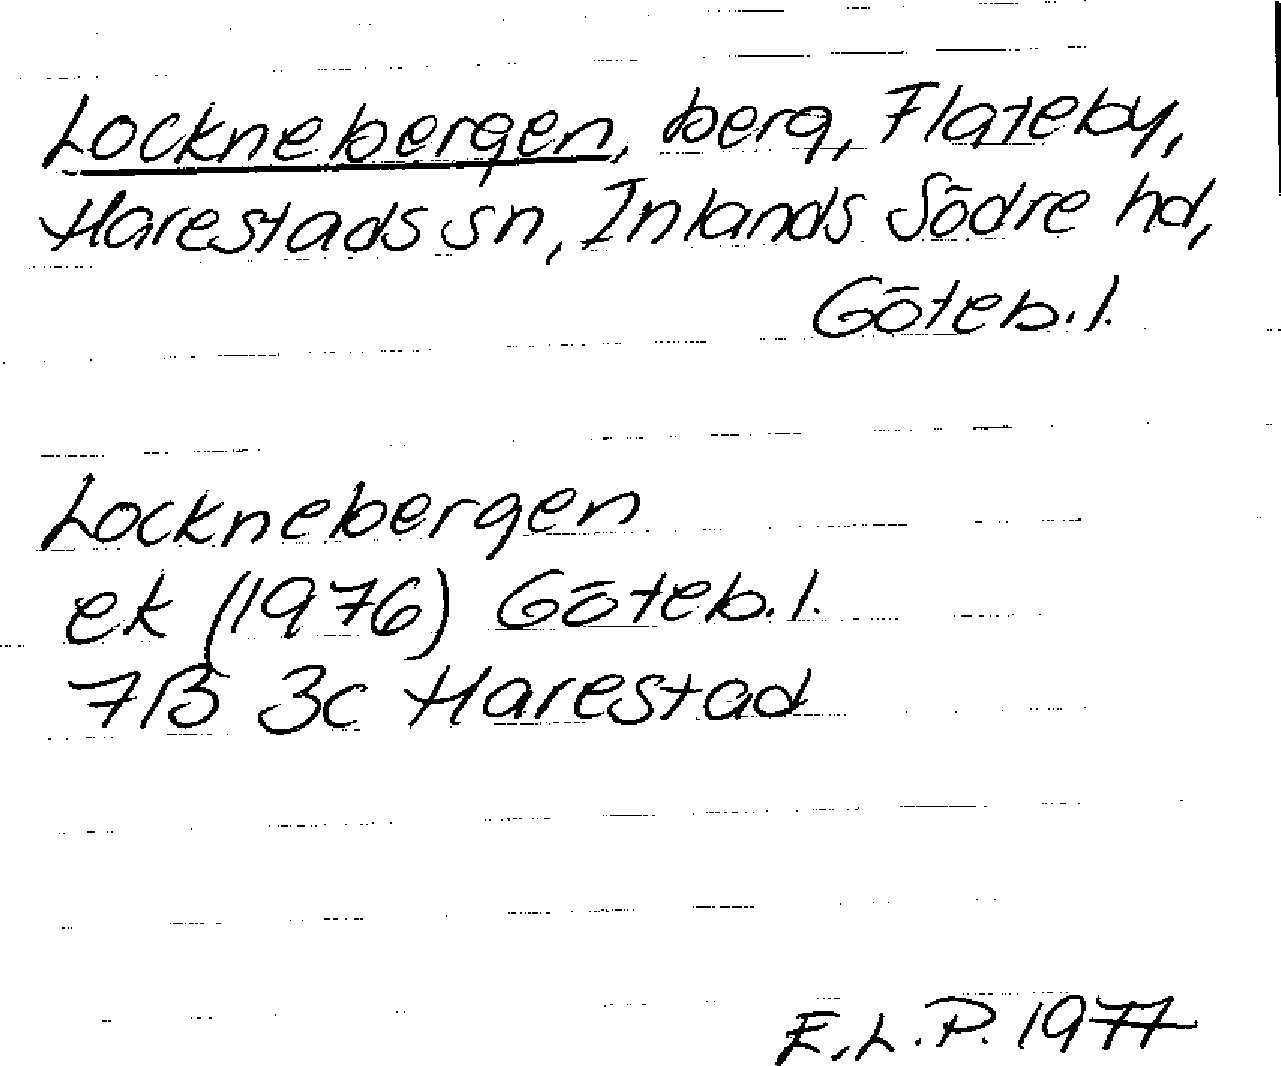 Locknebergen, berg, Flateby,
Harestads sn, Inlands Södre hd,
Göteb. l.
Locknebergen
ek (1976) Göteb. l.
7B 3c Harestad
E. L. P. 1977